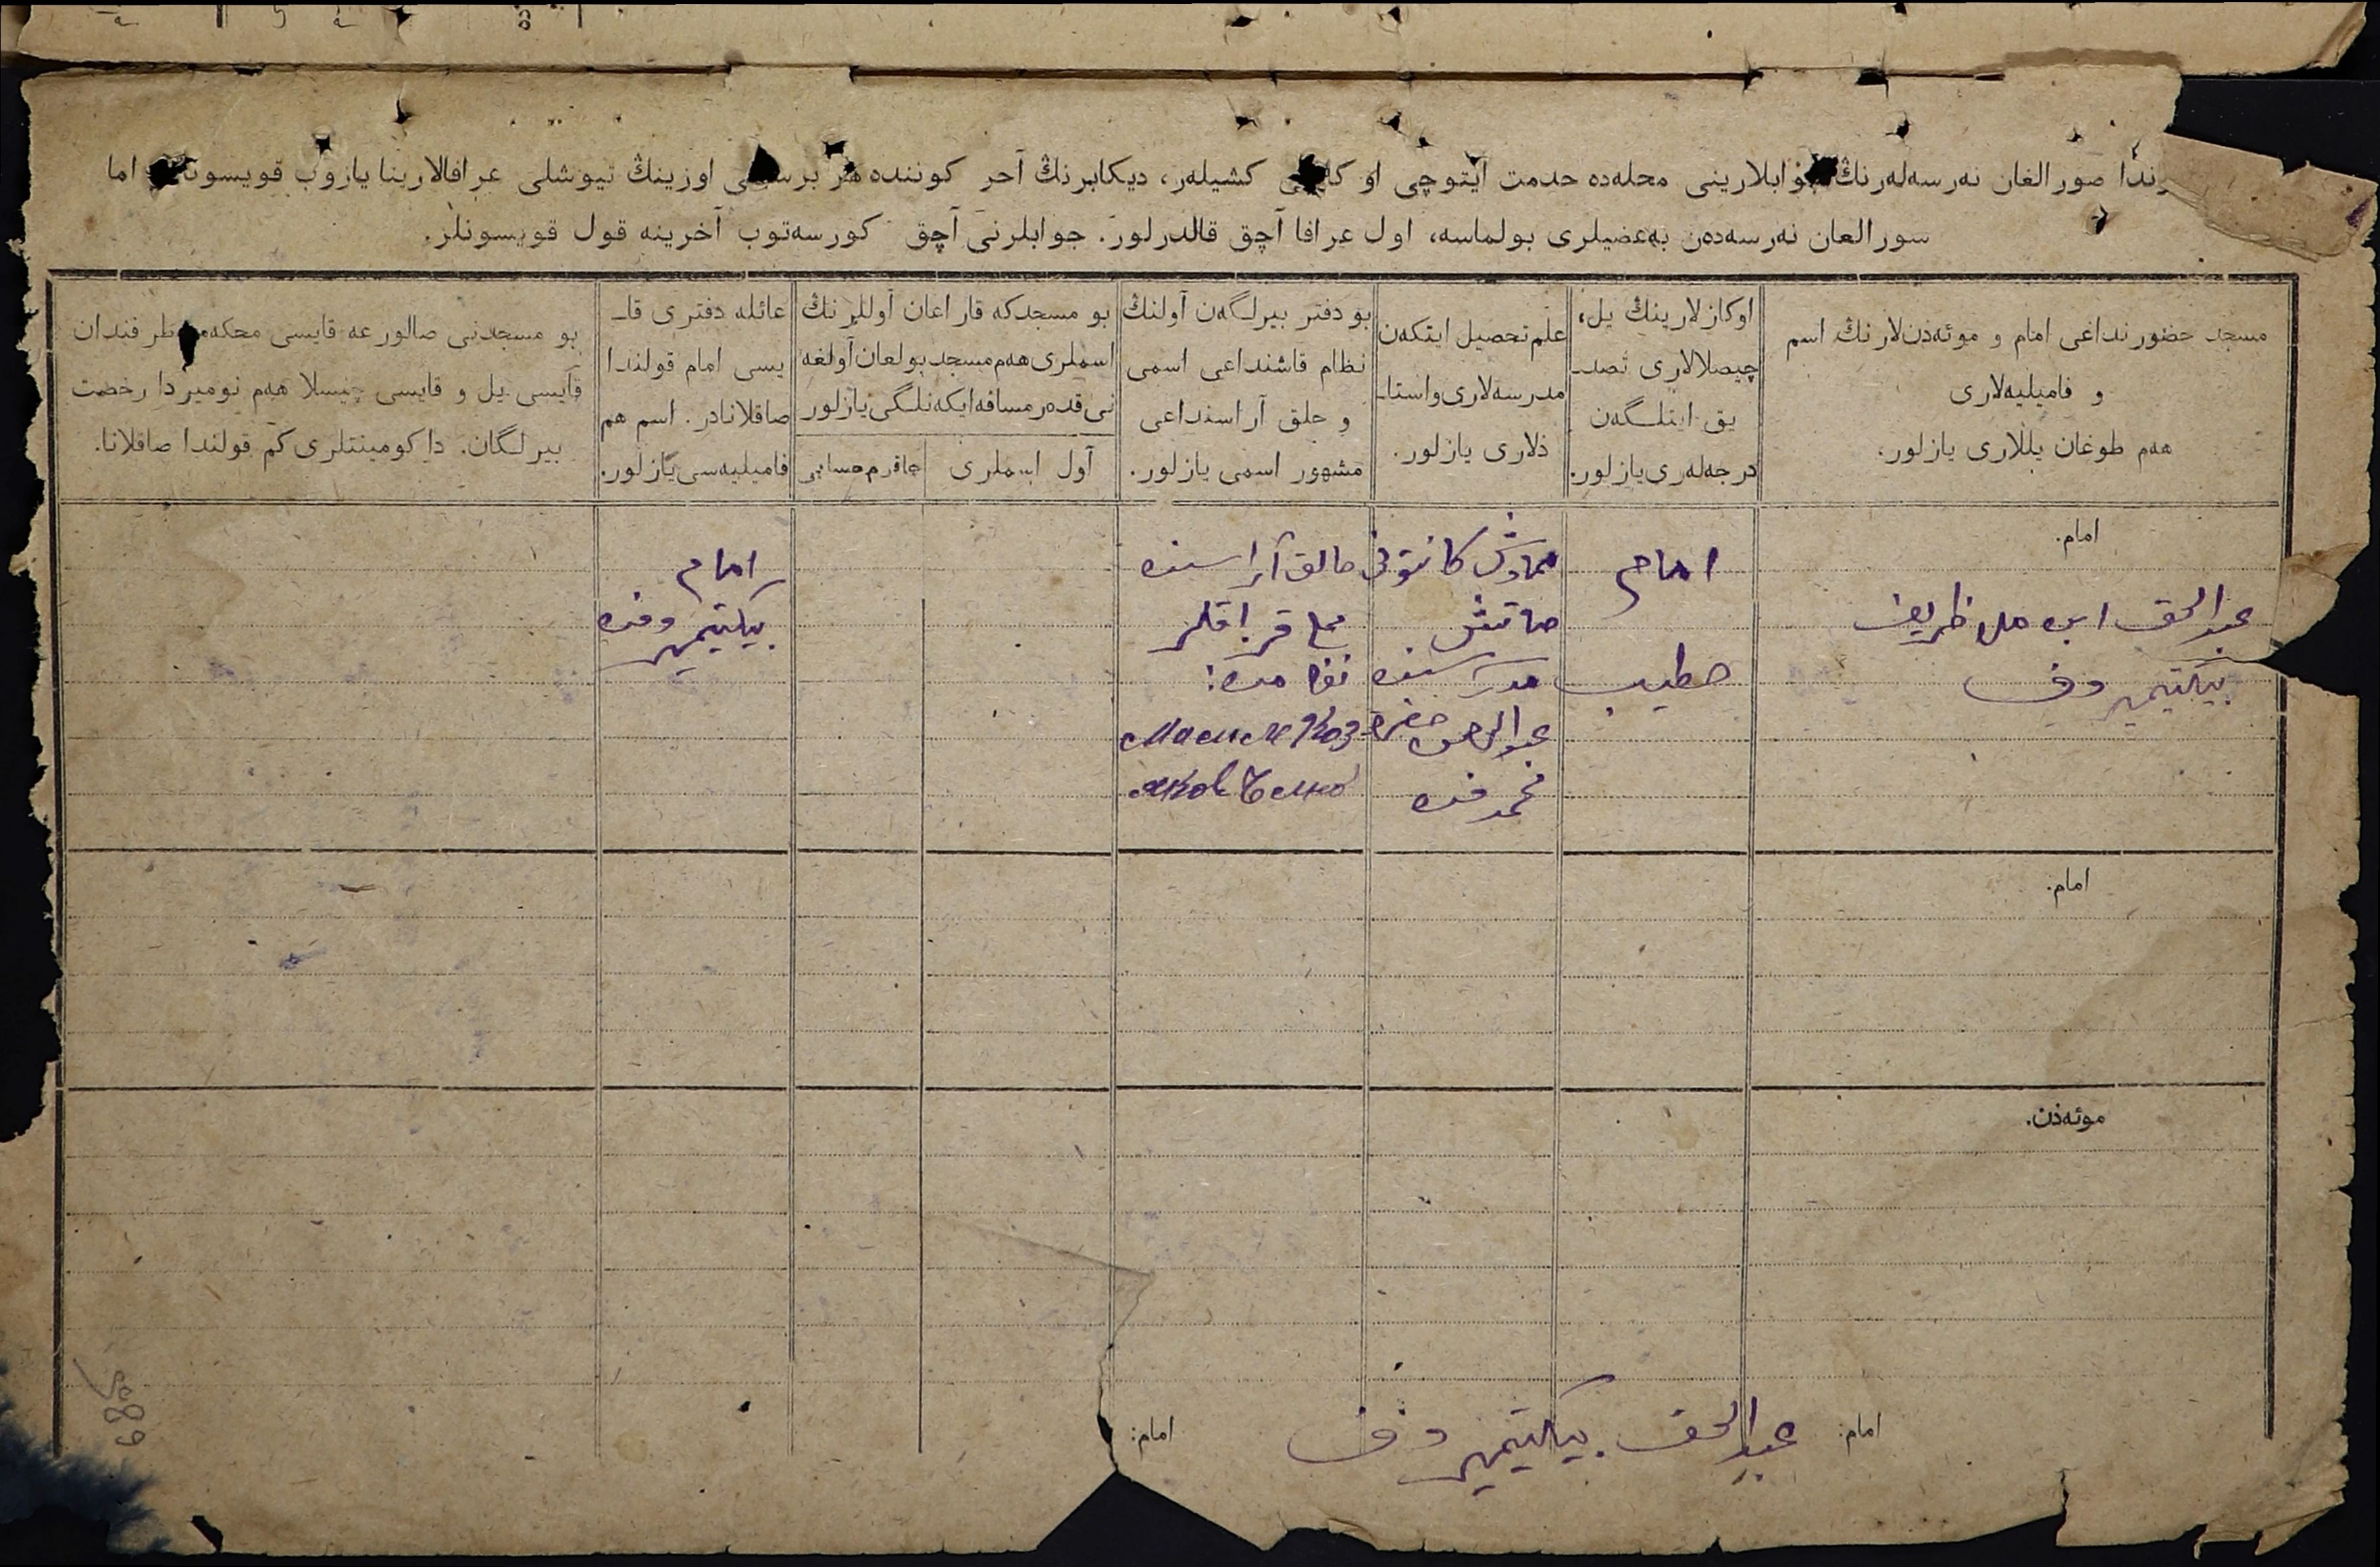 صورالغان نەرسەلەرنڭ جوابلارینی محلەدە خدمت ایتوچی کشیلەر، دیکابرنڭ آخر کونندە هر برسی اوزینڭ تیوشلی غرافالارینا یازوب قویسونلر اما
سورالغان نەرسەدەن بەعضیلری بولماسە، اول غرافا آچق قالدرلور. جوابلرنی آچق کورسەتوب آخرینە قول قویسونلر.
مسجد حضورنداغی امام و موئەذن‌لارنڭ اسم
و فامیلیەلاری
هەم طوغان یللاری یازلور.
اوکازلارینڭ یل،
چیصلالاری تصد‌ـ
یق ایتلـگەن
درجەلەری یازلور.
علم تحصیل ایتکەن
مدرسەلاری و استا‌ـ
ذلاری یازلور.
بو دفتر بیرلـگەن آولنڭ
نظام قاشنداغی اسمی
و خلق آراسنداغی
مشهور اسمی یازلور.
بو مسجدکە قاراغان آوللرنڭ
اسملری هەم مسجد بولغان آولغە
نی قدەر مسافە ایکەنلـگی یازلور
آول اسملری
چاقرم حسابی
عائلە دفتری قا‌ـ
یسی امام قولندا
صاقلانادر. اسم هم
فامیلیەسی یازلور.
بو مسجدنی صالورغە قایسی محکەمە طرفندان
قایسی یل و قایسی چیسلا هەم نومیردا رخصت
بیرلـگان. داکومینتلری کم قولندا صاقلانا.
امام.
عبدالحق ابن ملا ظریف
بیکتیمیروف
امام
خطیب
کانتونی
مدرسەسندە
عبدالرحمن حضرة
خالق آراسندە
امام
بیکتیمیروفدە
امام.
موئەذن.
امام:
عبدالحق بیکتیمیروف
امام:
689